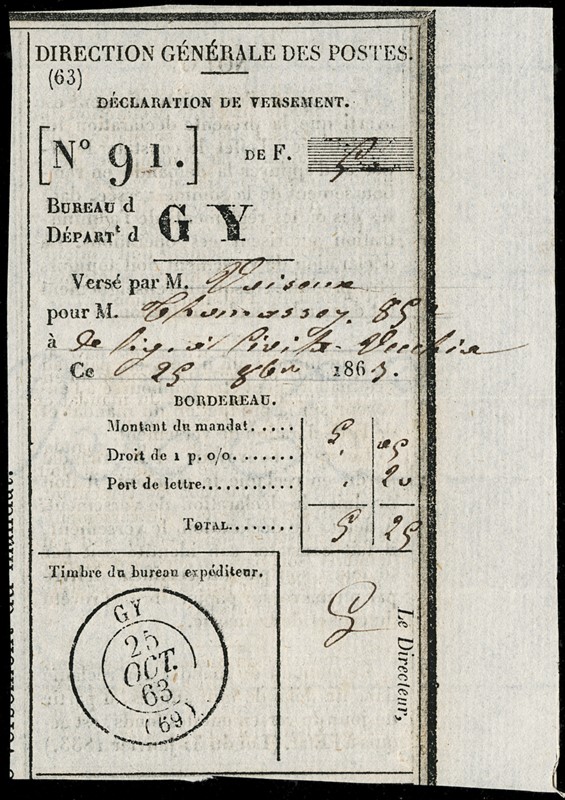 DIRECTION GÉNÉRALE DES POSTES.
(63)
DÉCLARATION DE VERSEMENT.
[N° 91.] DE F. 5
BUREAU d
DÉPARTt d GY
Versé par M.
pour M. Thomassey 85e
à de lig. à Civita-Vecchia
Ce 25 8bre 1863.
BORDEREAU.
Montant du mandat..... 5. "
Droit de 1 p. o/o....... 05
Port de lettre........... . 20
TOTAL....... 5 25
Timbre du bureau expéditeur.
GY
25
OCT.
63
(69)
Le Directeur,